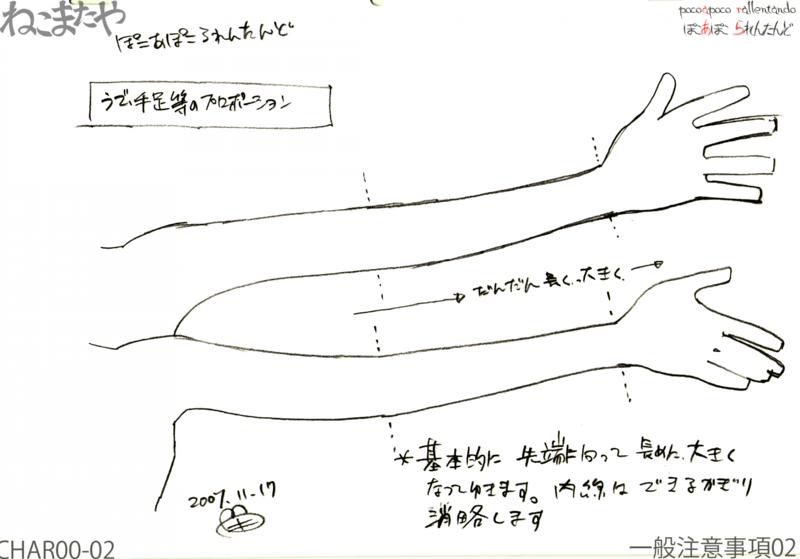 ねこまたや
ぽこあぽこ られんたんど
poco a poco rallentando
ぽこあぽこ られんたんど
うで、手足等のプロポーション
だんだん長く、大きく、
*基本的に先端に向って長めに、大きく
なってゆきます。内線はできるかぎり
消略します
2007.11.17
CHAR00-02
一般注意事項02